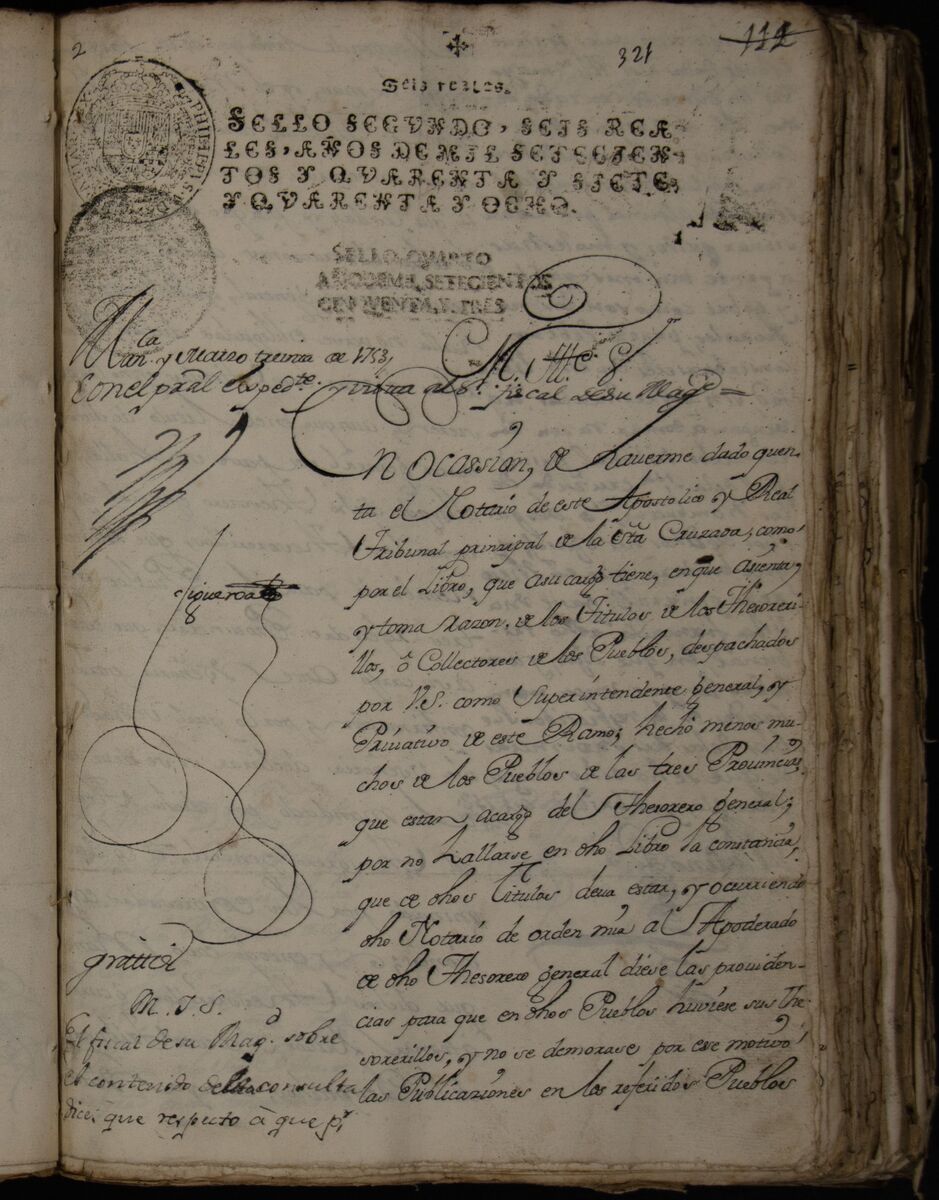 2
321
112
Seis reales.
SELLO SEGVNDO, SEIS REA-
LES, AÑOS DE MIL SETECIEN-
TOS Y QVARENTA Y SIETE,
Y QVARENTA Y OCHO.
PHILIPPUS
SELLO QUARTO
AÑO DE MIL SETECIENTOS
CINQUENTA, Y TRES
y Marzo treinta de 1753,
Con el pral expedte. vista al Sr. fiscal de su Magd =
N Ocassion, de hauerme dado quen-
ta el Notario de este Apostolico y Real
Tribunal principal de la Sta Cruzada, como
por el Libro, que asu cargo tiene, en que asienta,
y toma razon, de los Titulos de los Thesoreri-
llos, ô Collectores de los Pueblos, despachados
por V.S. como Superintendente general, y
Privativo de este Ramo; hechó menos mu-
chos de los Pueblos de las tres Provincias,
que estan acargo del Thesorero general;
por no hallarse en dho Libro la constancia,
que de dhos Titulos deva estar, y ocurriendo
dho Notario de orden mia al Apoderado
de dho Thesorero general diese las providen-
cias para que en dhos Pueblos huviese sus The-
sorerillos, y no se demorase por ese motivo
las Publicaziones en los referidos Pueblos
Figueroa
M. I. S.
El fiscal de su Magd. sobre
el contenido desta consulta
dice: que respecto â que pr